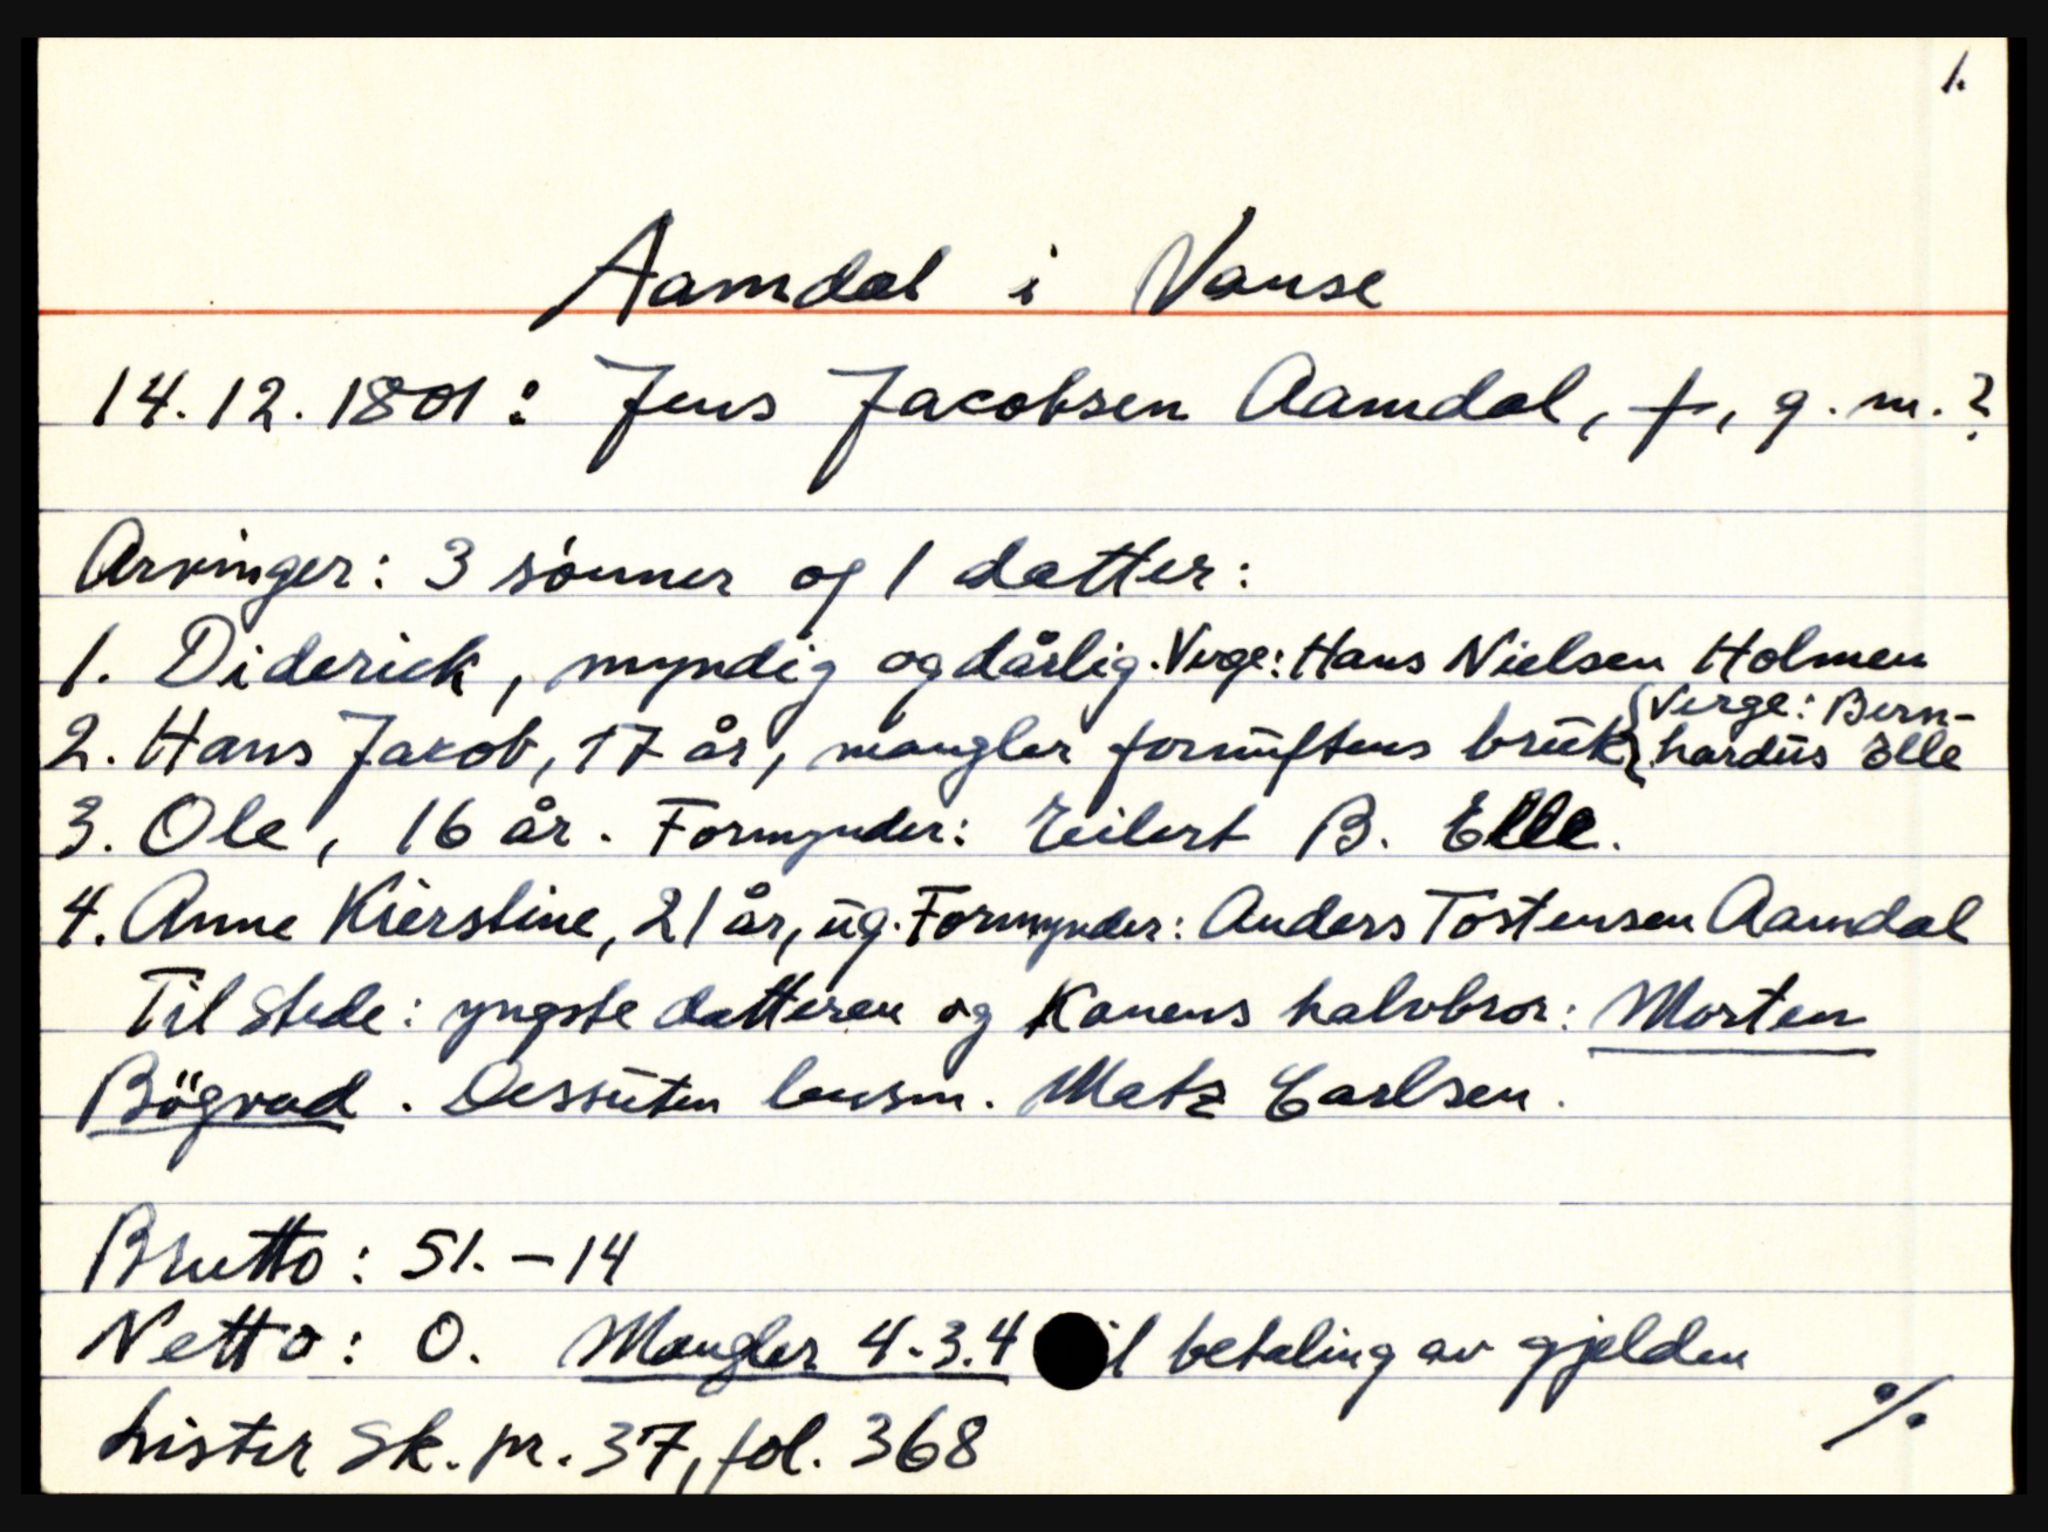 1.
Aamdal i Vanse
14.12.1801: Jens Jacobsen Aamdal, †, g.m.?
Arvinger: 3 sönner og 1 datter:
1. Diderick, myndig og dårlig. Verge: Hans Nielsen Holmen
2. Hans Jakob, 17 år, mangler fornüftens brük { Verge: Bern-
hardüs Elle
3. Ole, 16 år. Formynder: Eilert B. Elle.
4. Anne Kierstine, 21 år, üg. Formynder: Anders Tostensen Aamdal
Til stede: yngste datteren og Konens halvbror: Morten
Bögvad. Dessüten lensm. Matz Carlsen.
Brutto: 51.-14
Netto: 0. Mangler 4.3.4 til betaling av gjelden
Lister Sk. pr. 37, fol. 368
%